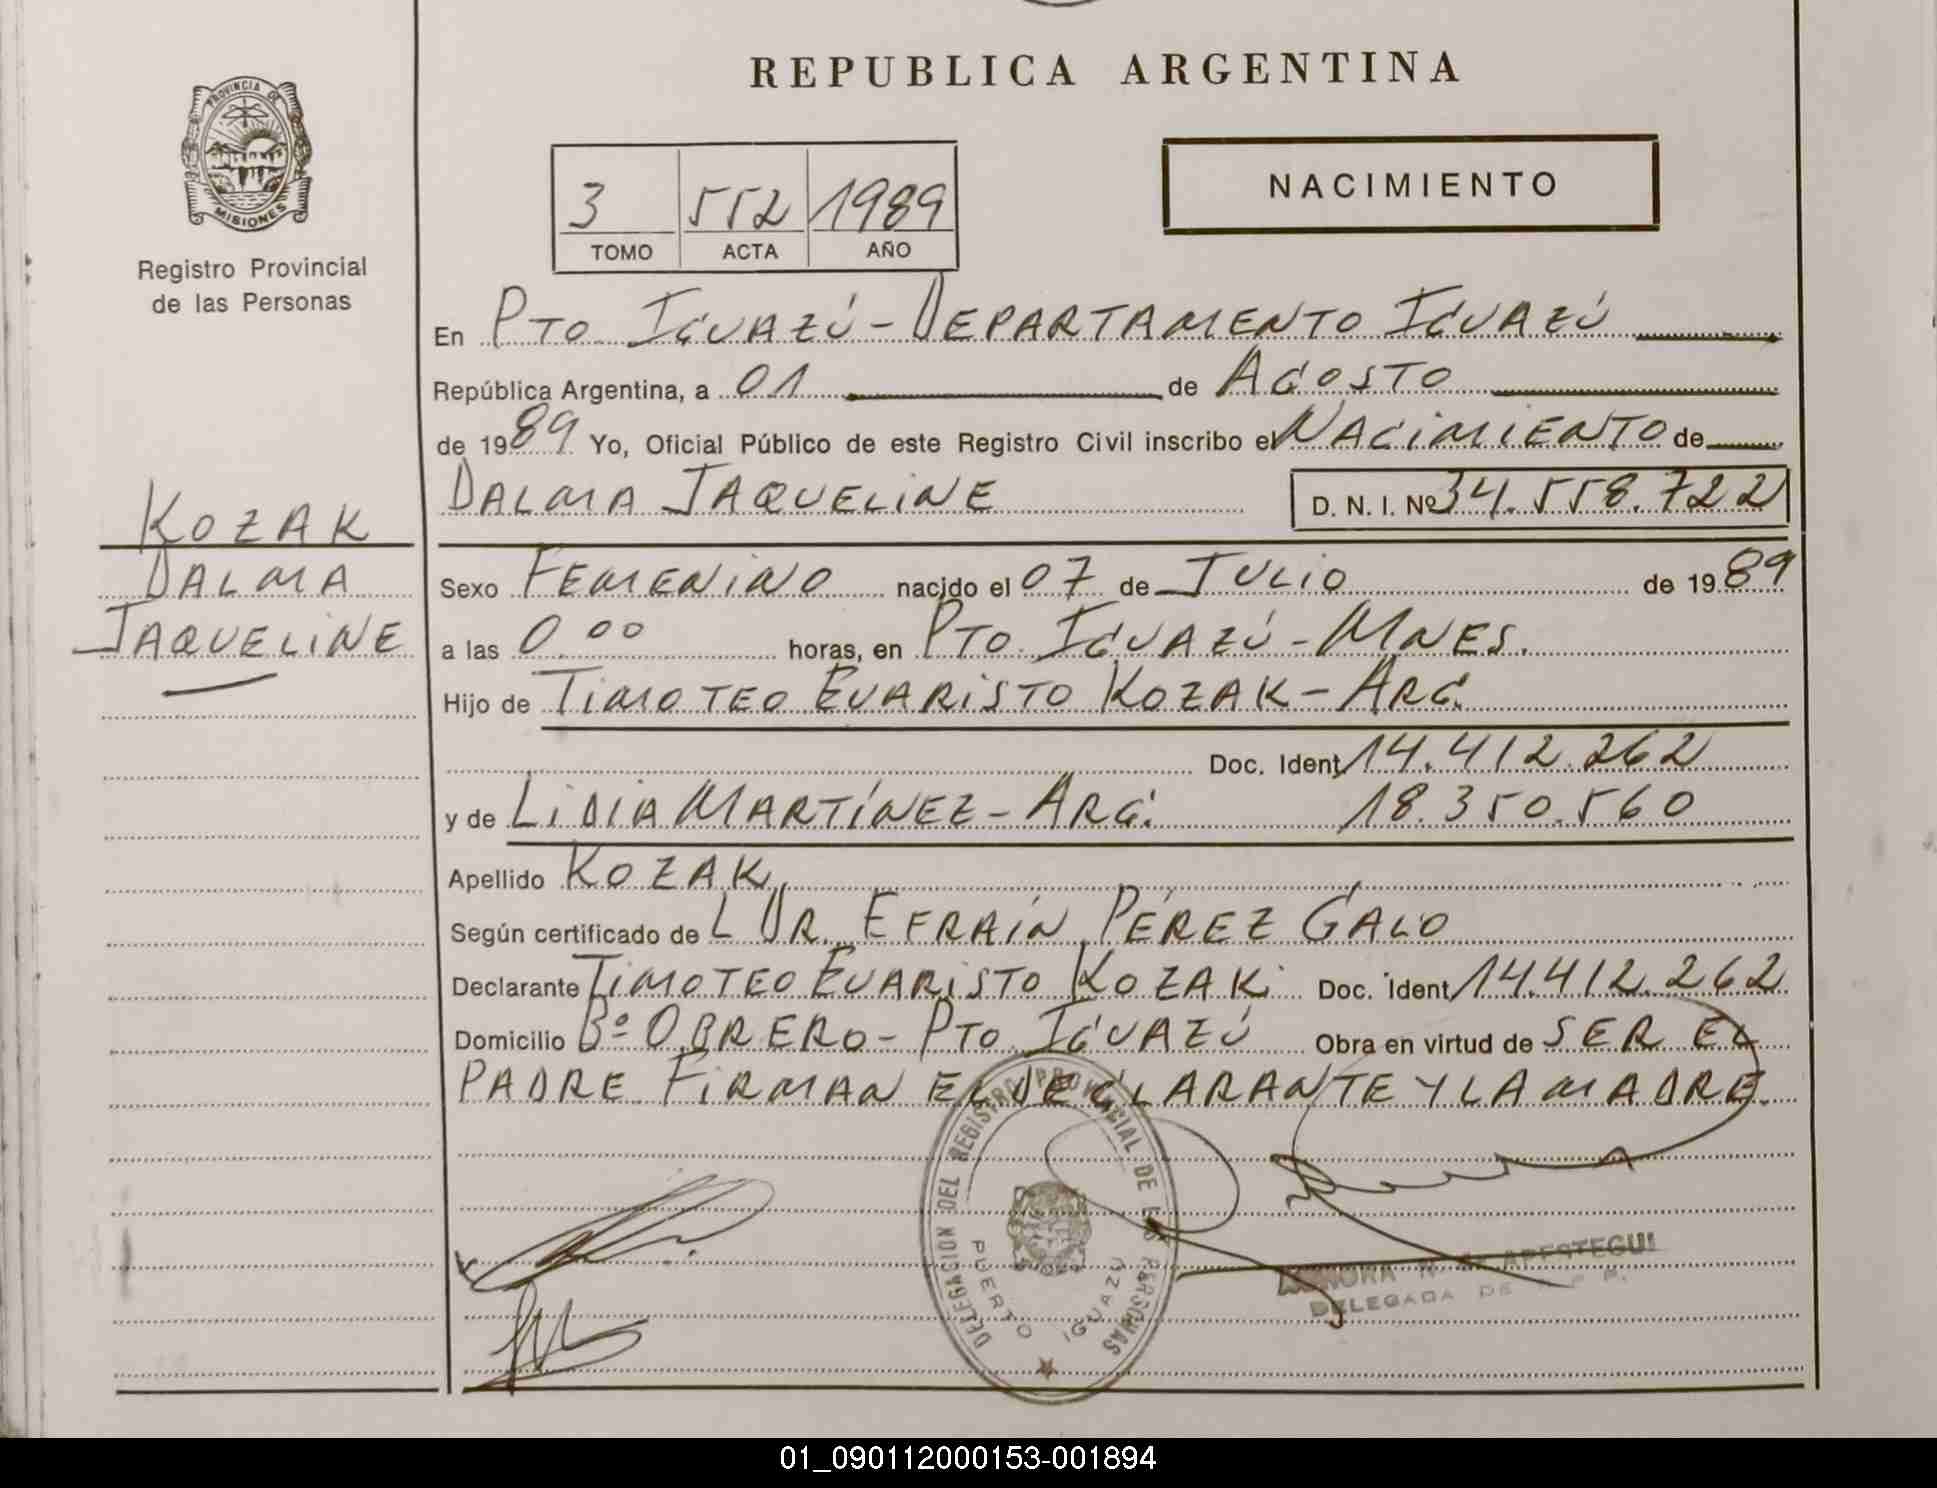 REPUBLICA ARGENTINA
PROVINCIA DE
MISIONES
Registro Provincial
de las Personas
NACIMIENTO
3 552 1989
TOMO ACTA AÑO
En PTO IGUAZÚ - DEPARTAMENTO IGUAZÚ
República Argentina, a 01 de AGOSTO
de 1989 Yo, Oficial Público de este Registro Civil inscribo el NACIMIENTO de
DALMA JAQUELINE D. N. I. Nº 34.558.722
KOZAK
DALMA
JAQUELINE
Sexo FEMENINO nacido el 07 de JULIO de 1989
a las 0.00 horas, en PTO IGUAZÚ - MNES.
Hijo de TIMOTEO EVARISTO KOZAK - ARG.
Doc. Ident 14.412.262
y de LIDIA MARTÍNEZ - ARG. 18.350.560
Apellido KOZAK
Según certificado de L DR. EFRAÍN PÉREZ GALO
Declarante TIMOTEO EVARISTO KOZAK. Doc. Ident 14.412.262
Domicilio Bº OBRERO - PTO IGUAZÚ Obra en virtud de SER EL
PADRE FIRMAN EL DECLARANTE Y LA MADRE.
DELEGACION DEL REGISTRO PROVINCIAL DE LAS PERSONAS
PUERTO IGUAZU
APESTEGUI
DELEGADA DE
01_090112000153-001894